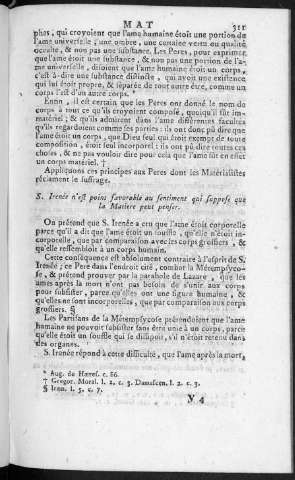 MAT 311
phes, qui croyoient que l'ame humaine étoit une portion de
l'ame universelle; une ombre, une certaine vertu ou qualité
occulte, & non pas une substance. Les Peres, pour exprimer
que l'ame étoit une substance, & non pas une portion de l'a-
me universelle, disoient que l'ame humaine étoit un corps,
c'est-à-dire une substance distincte, qui avoit une existence
qui lui étoit propre, & séparée de tout autre être, comme un
corps l'est d'un autre corps. *
Enfin, il est certain que les Peres ont donné le nom de
corps à tout ce qu'ils croyoient composé, quoiqu'il fût im-
matériel; & qu'ils admirent dans l'ame différentes facultés
qu'ils regardoient comme ses parties: ils ont donc pû dire que
l'ame étoit un corps, que Dieu seul qui étoit exempt de toute
composition, étoit seul incorporel: ils ont pû dire toutes ces
choses, & ne pas vouloir dire pour cela que l'ame fût en effet
un corps matériel. †
Appliquons ces principes aux Peres dont les Matérialistes
réclament le suffrage.
S. Irenée n'est point favorable au sentiment qui suppose que
la Matiere peut penser.
On prétend que S. Irenée a cru que l'ame étoit corporelle
parce qu'il a dit que l'ame étoit un souffle, qu'elle n'étoit in-
corporelle, que par comparaison avec les corps grossiers, &
qu'elle ressembloit à un corps humain.
Cette conséquence est absolument contraire à l'esprit de S.
Irenée; ce Pere dans l'endroit cité, combat la Métempsyco-
se, & prétend prouver par la parabole de Lazare, que les
ames après la mort n'ont pas besoin de s'unir aux corps
pour subsister, parce qu'elles ont une figure humaine, &
qu'elles ne sont incorporelles, que par comparaison aux corps
grossiers. §
Les Partisans de la Métempsycose prétendoient que l'ame
humaine ne pouvoit subsister sans être unie à un corps, parce
qu'elle étoit un souffle qui se dissipoit, s'il n'étoit retenu dans
des organes.
S. Irenée répond à cette difficulté, que l'ame après la mort,
* Aug. de Hæres. c. 86.
† Gregor. Moral. l. 2. c. 3. Damascen. l. 2. c. 3.
§ Iren. l. 5. c. 7.
V 4